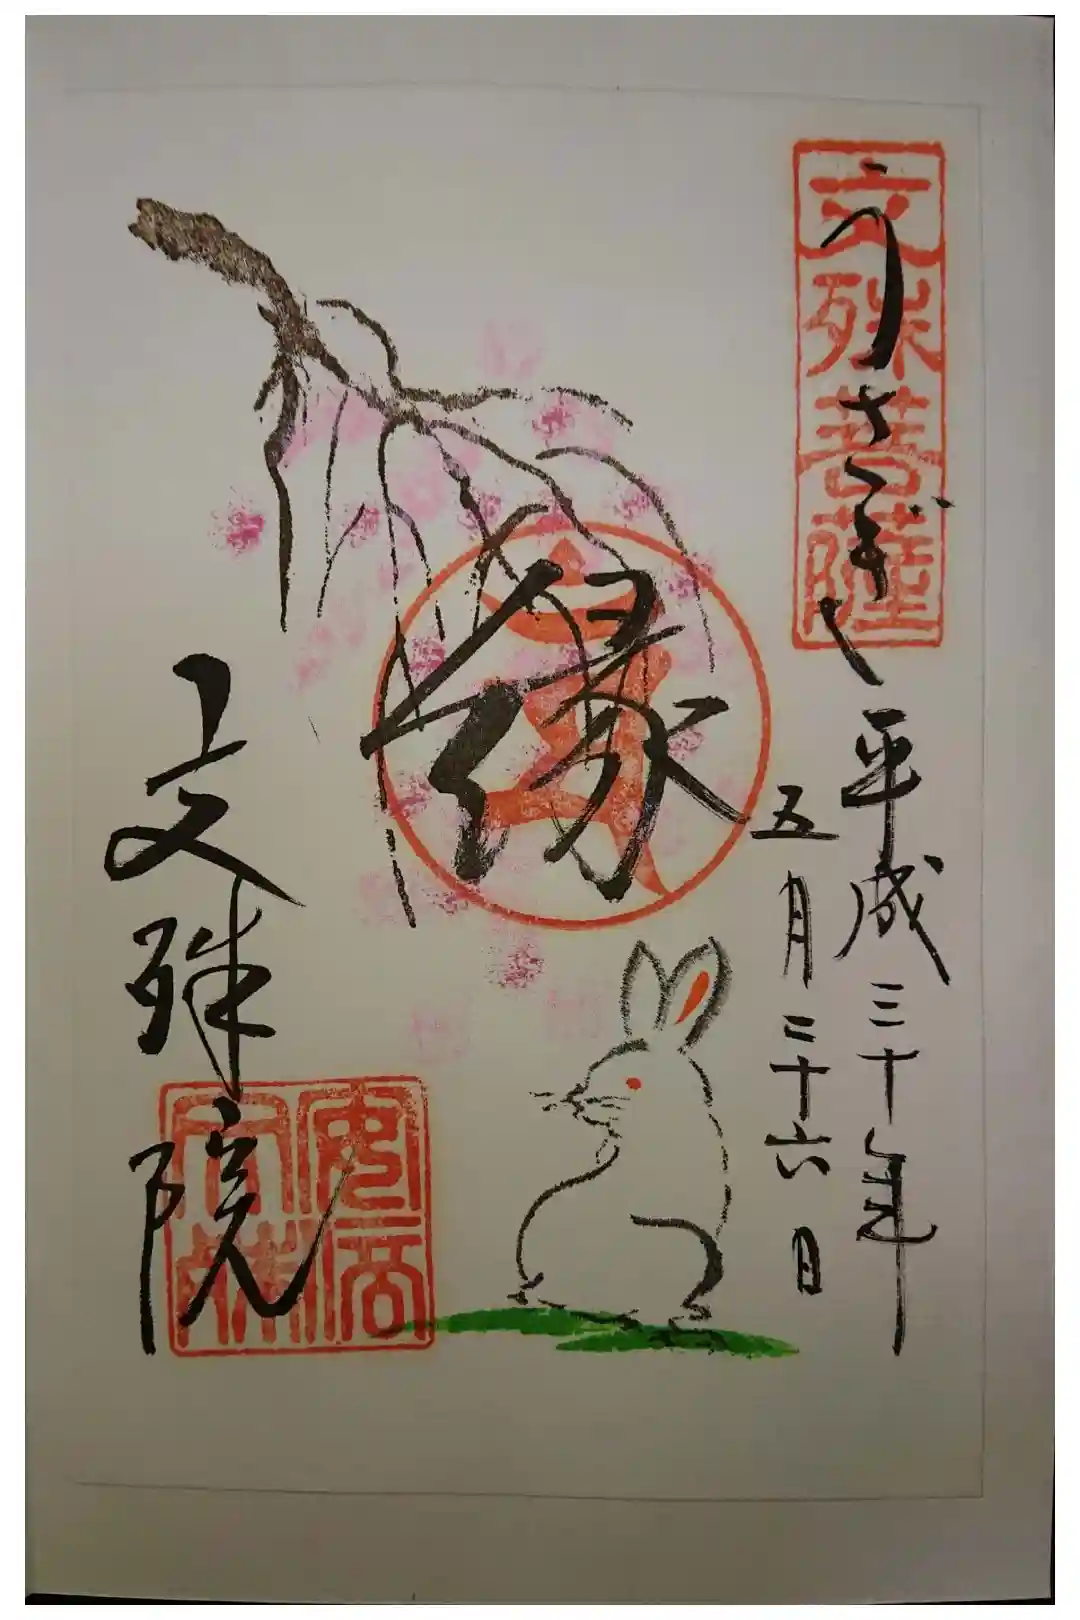 文殊菩薩
うさぎ
平成三十年
五月二十六日
縁
文殊院